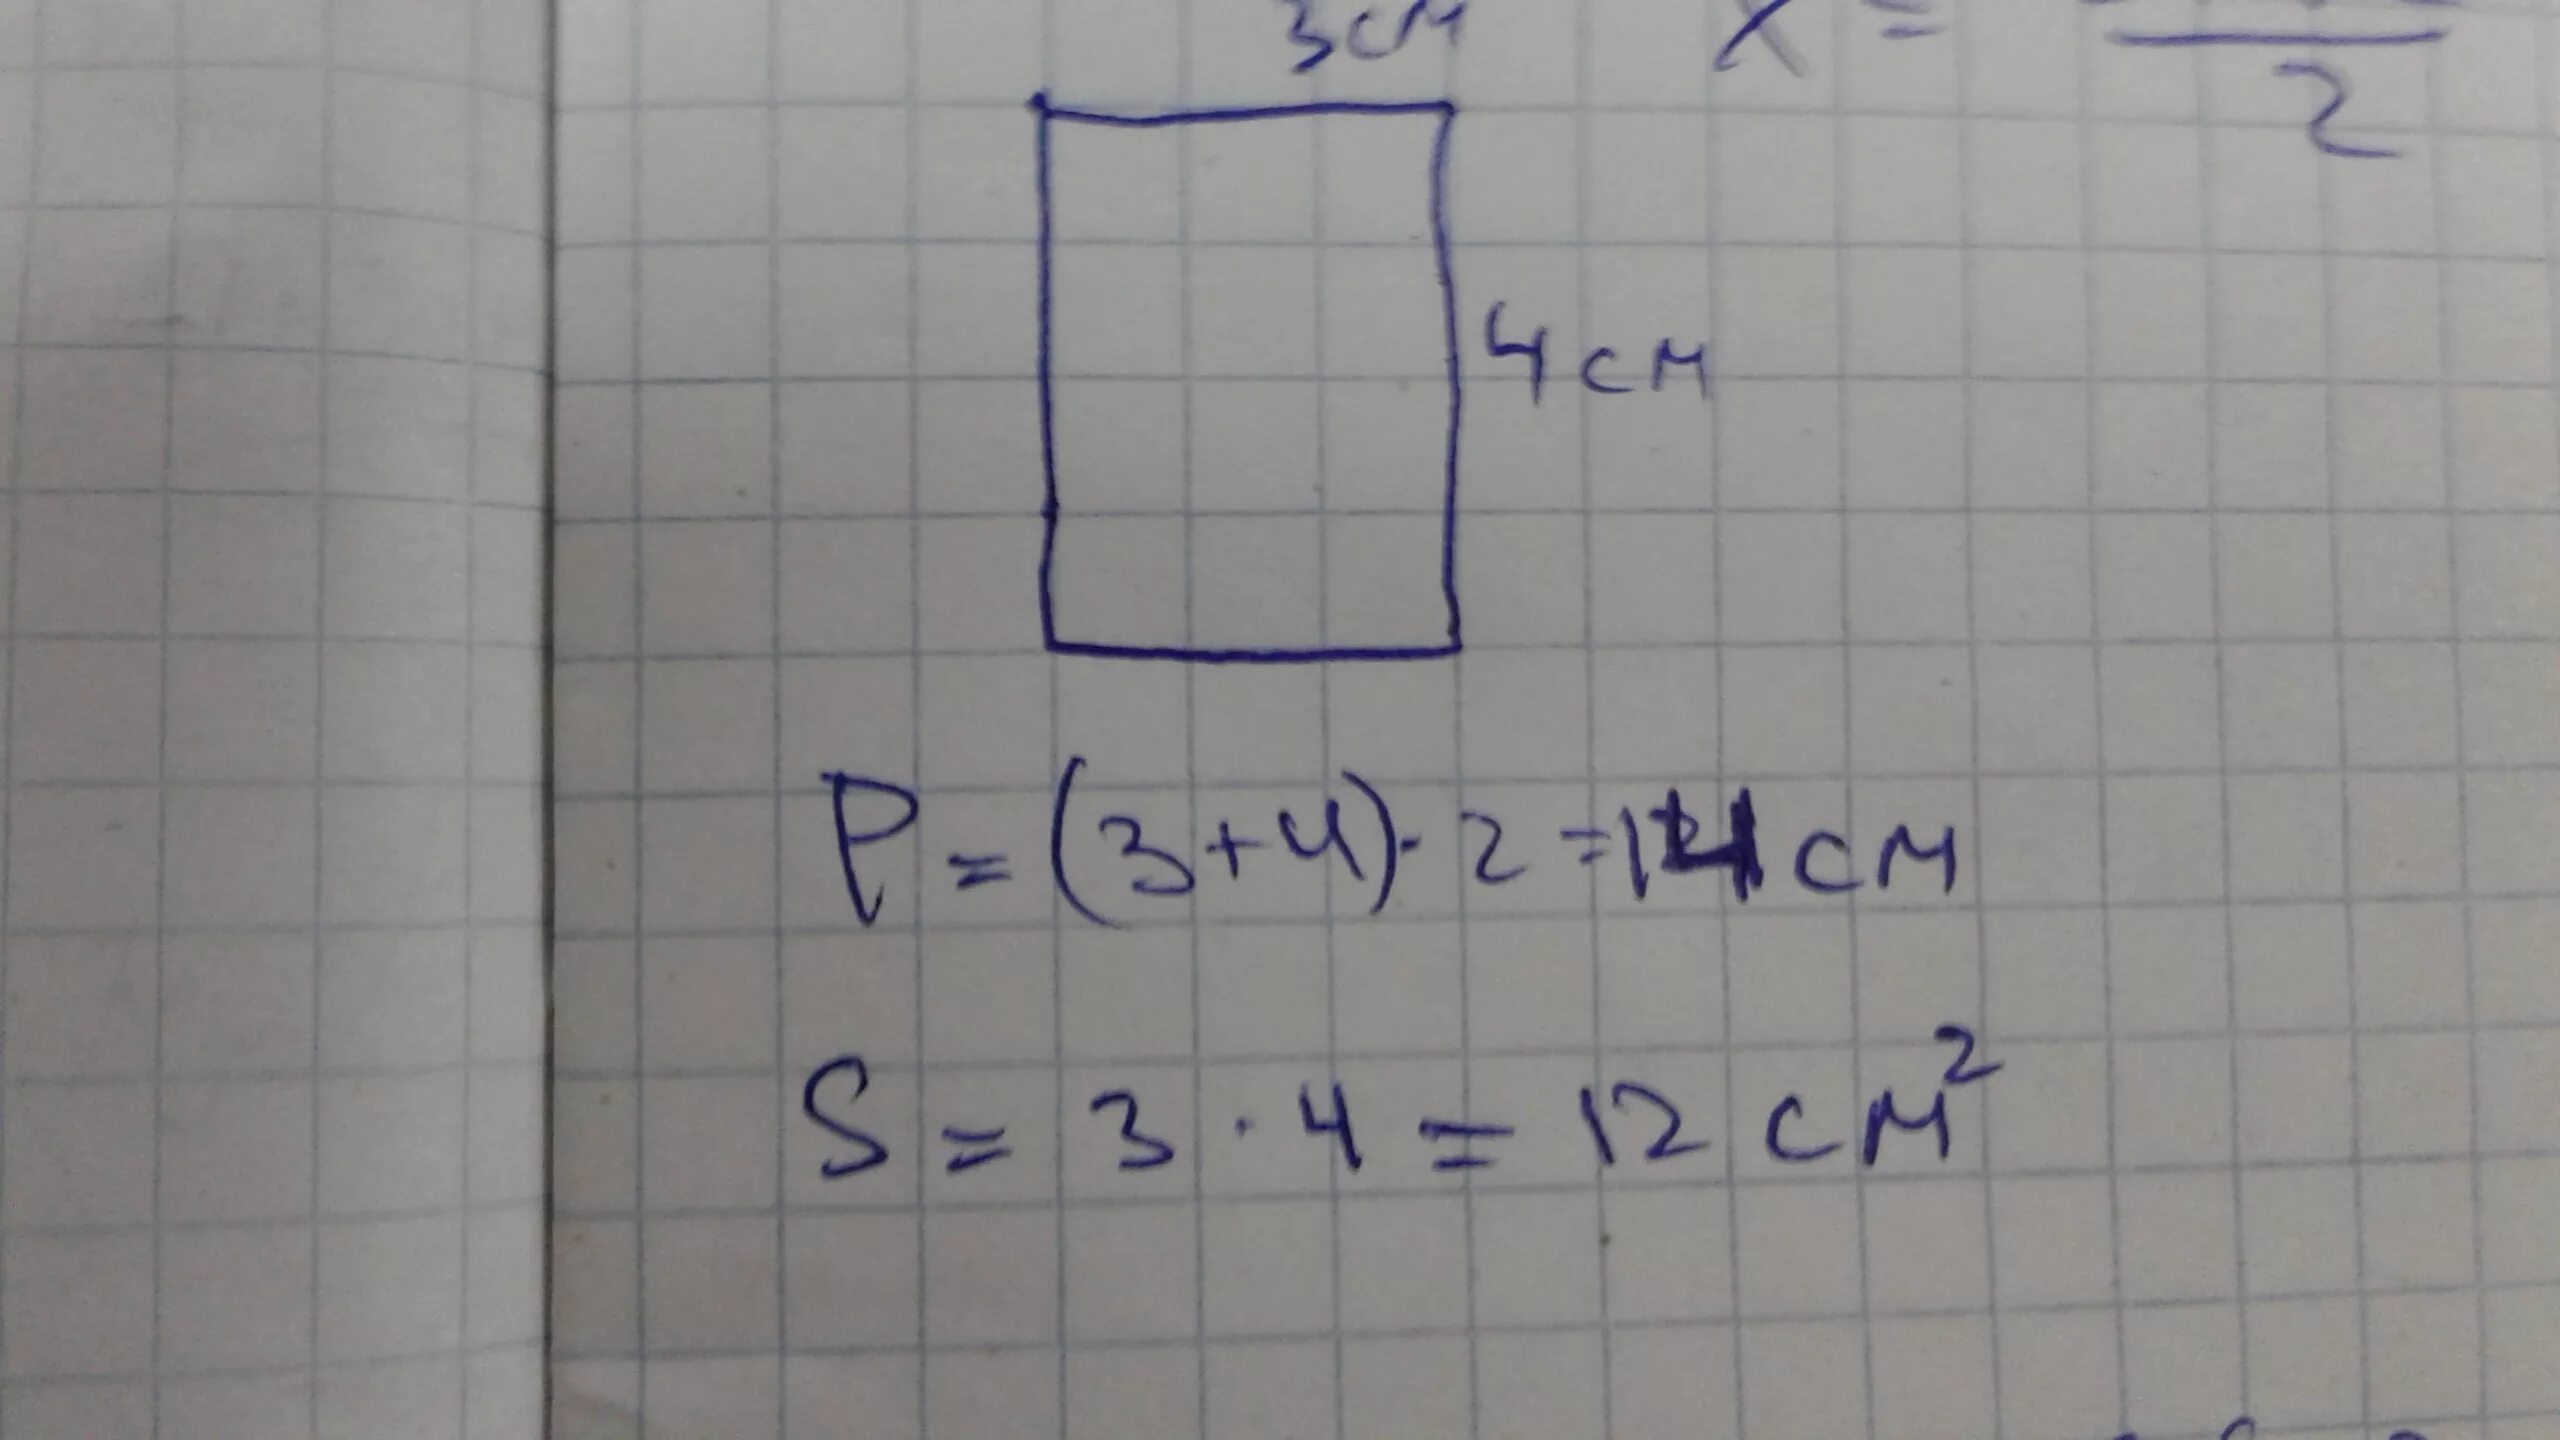 3см
x =
2
4 см
P = (3+4)·2 = 14 см
S = 3 · 4 = 12 см²